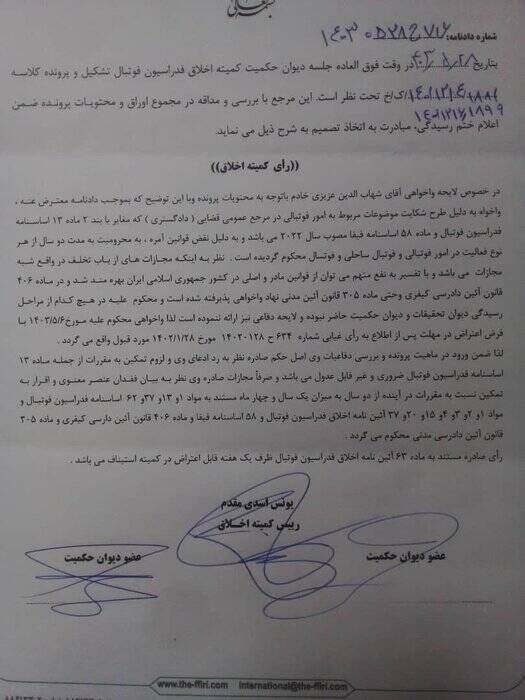 بسمه تعالی
شماره دادنامه:
بتاریخ ۱۴۰۳/۸/۲۸ در وقت فوق العاده جلسه دیوان حکمیت کمیته اخلاق فدراسیون فوتبال تشکیل و پرونده کلاسه
ک/خ تحت نظر است. این مرجع با بررسی و مداقه در مجموع اوراق و محتویات پرونده ضمن
اعلام ختم رسیدگی، مبادرت به اتخاذ تصمیم به شرح ذیل می نماید.
((رأی کمیته اخلاق))
در خصوص لایحه واخواهی آقای شهاب الدین عزیزی خادم باتوجه به محتویات پرونده وبا این توضیح که بموجب دادنامه معترض عنه ،
واخواه به دلیل طرح شکایت موضوعات مربوط به امور فوتبالی در مرجع عمومی قضایی (دادگستری ) که مغایر با بند ۲ ماده ۱۳ اساسنامه
فدراسیون فوتبال و ماده ۵۸ اساسنامه فیفا مصوب سال ۲۰۲۲ می باشد و به دلیل نقض قوانین آمره ، به محرومیت به مدت دو سال از هر
نوع فعالیت در امور فوتبالی و فوتبال ساحلی و فوتسال محکوم گردیده است . نظر به اینکه مجازات های ارتیاب تخلف در واقع شبه
مجازات می باشد و با تفسیر به نفع متهم می توان از قوانین مادر و اصلی در کشور جمهوری اسلامی ایران بهره مند شد و در ماده ۴۰۶
قانون آئین دادرسی کیفری وحتی ماده ۳۰۵ قانون آئین مدنی نهاد واخواهی پذیرفته شده است و محکوم علیه در هیچ کدام از مراحل
رسیدگی دیوان تحقیقات و دیوان حکمیت حاضر نبوده و لایحه دفاعی نیز ارائه ننموده است لذا واخواهی محکوم علیه مورخ ۱۴۰۳/۵/۶ با
فرض اعتراض در مهلت پس از اطلاع به رأی غیابی شماره ۶۳۴ ح ۱۴۰۲۰۱۲۸ مورخ ۱۴۰۲/۱/۲۸ مورد قبول واقع می گردد .
لذا ضمن ورود در ماهیت پرونده و بررسی دفاعیات وی اصل حکم صادره نظر به رد ادعای وی و لزوم تمکین به مقررات از جمله ماده ۱۳
اساسنامه فدراسیون فوتبال ضروری و غیر قابل عدول می باشد و صرفاً مجازات صادره وی نظر به بیان فقدان عنصر معنوی و اقرار به
تمکین نسبت به مقررات در آینده از دو سال به میزان یک سال و چهار ماه مستند به مواد ۱و ۱۳و ۳۷و ۶۲ اساسنامه فدراسیون فوتبال و
مواد ۱و ۲و ۳و ۴و ۱۵و ۲۰و ۳۷ آئین نامه اخلاق فدراسیون فوتبال و ۵۸ اساسنامه فیفا و ماده ۴۰۶ قانون آئین دارسی کیفری و ماده ۳۰۵
قانون آئین دادرسی مدنی محکوم می گردد .
رأی صادره مستند به ماده ۶۳ آئین نامه اخلاق فدراسیون فوتبال ظرف یک هفته قابل اعتراض در کمیته استیناف می باشد .
یونس اسدی مقدم
رییس کمیته اخلاق
عضو دیوان حکمیت
عضو دیوان حکمیت
www.the-ffiri.com international@the-ffiri.com